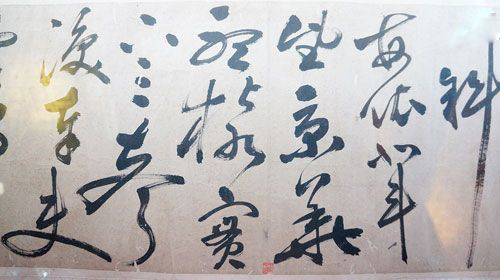 斜
每依北斗
望京華
聽猿實
下三聲
淚奉使